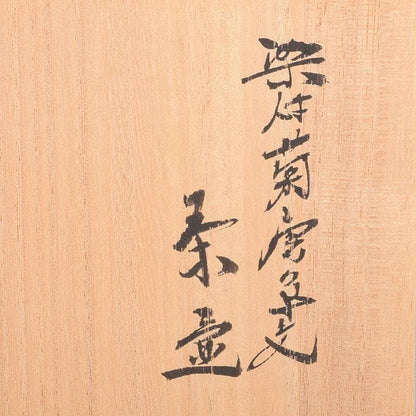 染付菊唐草文
茶壷